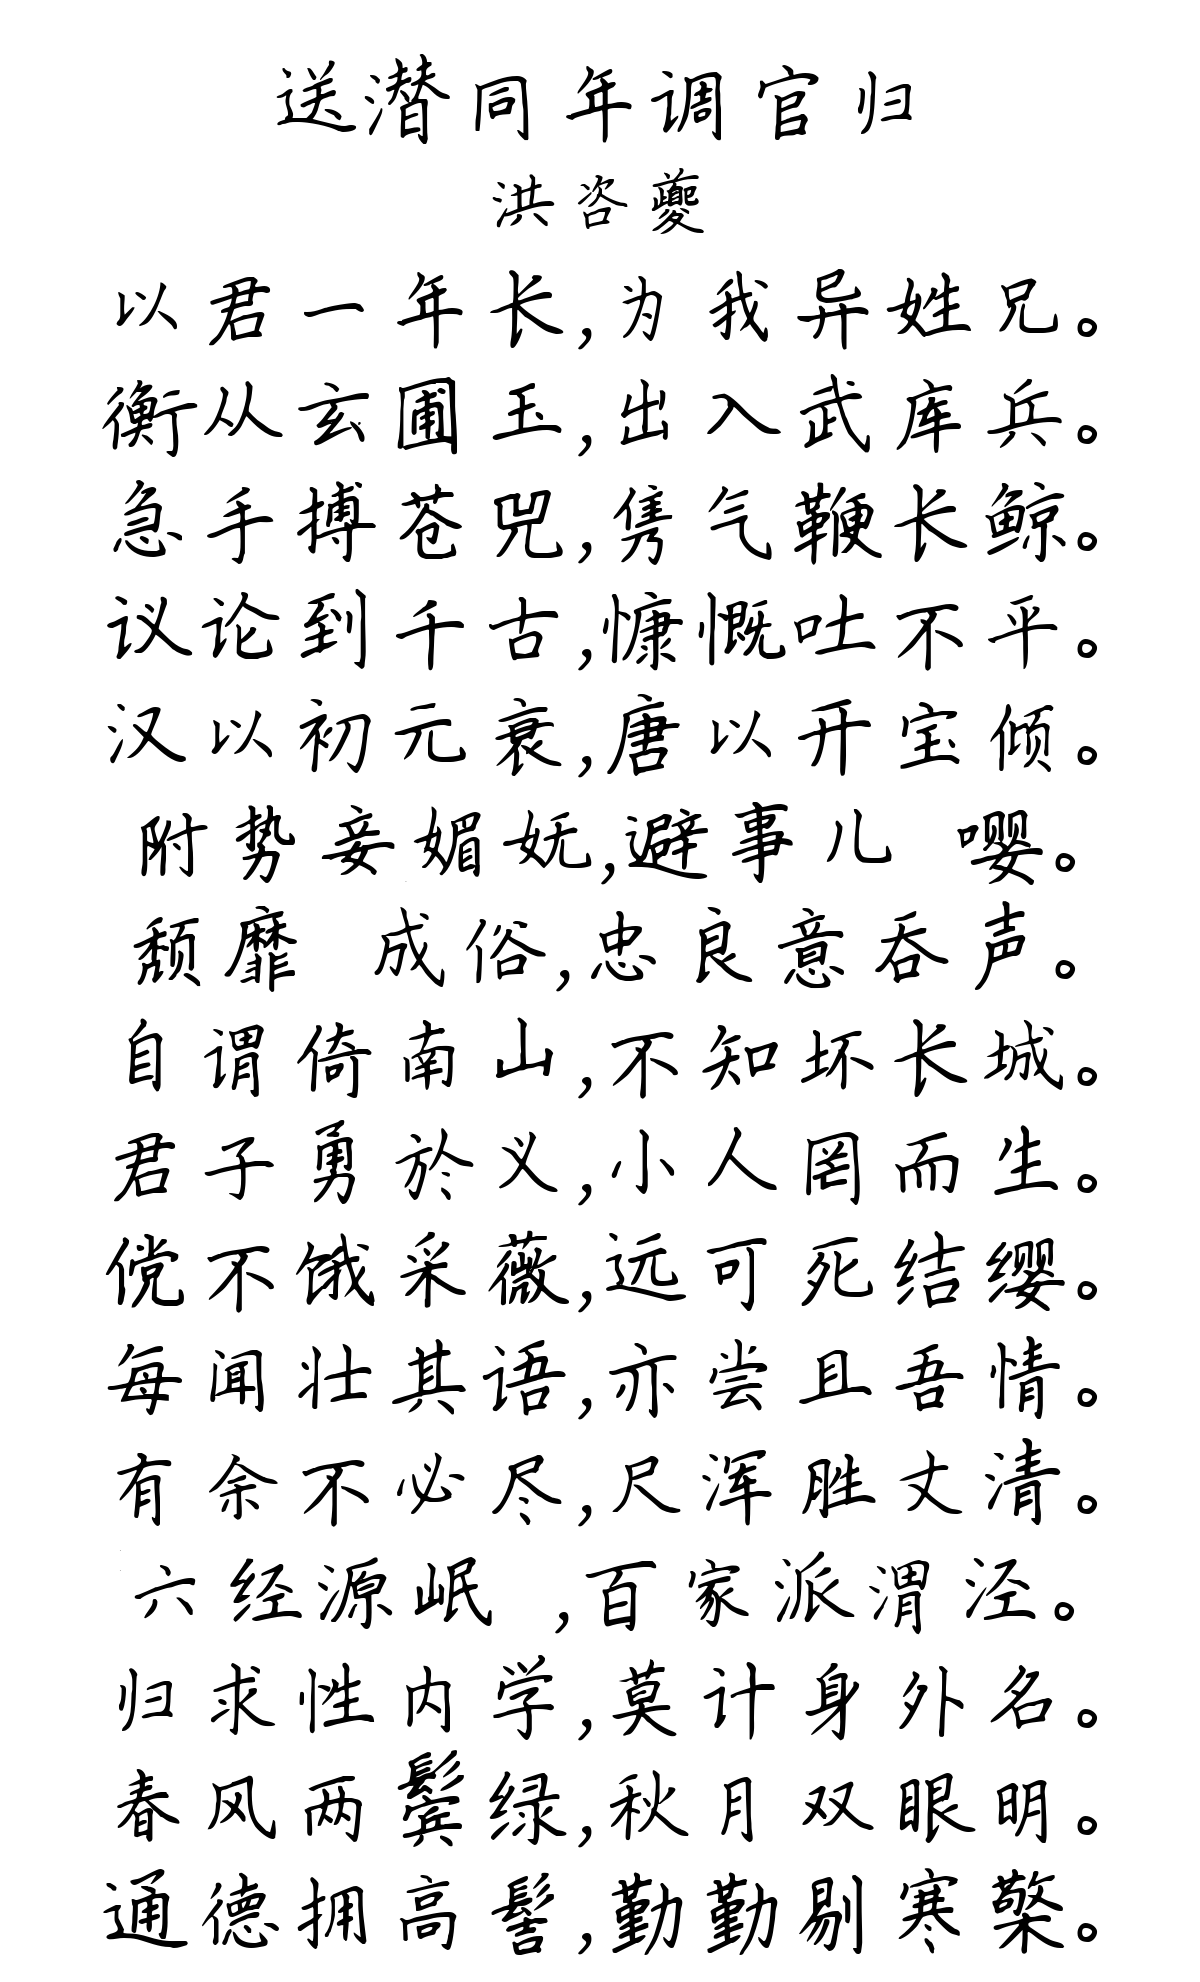 送潜同年调官归
洪咨夔
以君一年长,为我异姓兄。
衡从玄圃玉,出入武库兵。
急手搏苍兕,隽气鞭长鲸。
议论到千古,慷慨吐不平。
汉以初元衰,唐以开宝倾。
附势妾媚妩,避事儿 嘤。
颓靡 成俗,忠良意吞声。
自谓倚南山,不知坏长城。
君子勇於义,小人罔而生。
傥不饿采薇,远可死结缨。
每闻壮其语,亦尝且吾情。
有余不必尽,尺浑胜丈清。
六经源岷 ,百家派渭泾。
归求性内学,莫计身外名。
春风两鬓绿,秋月双眼明。
通德拥高髻,勤勤剔寒檠。